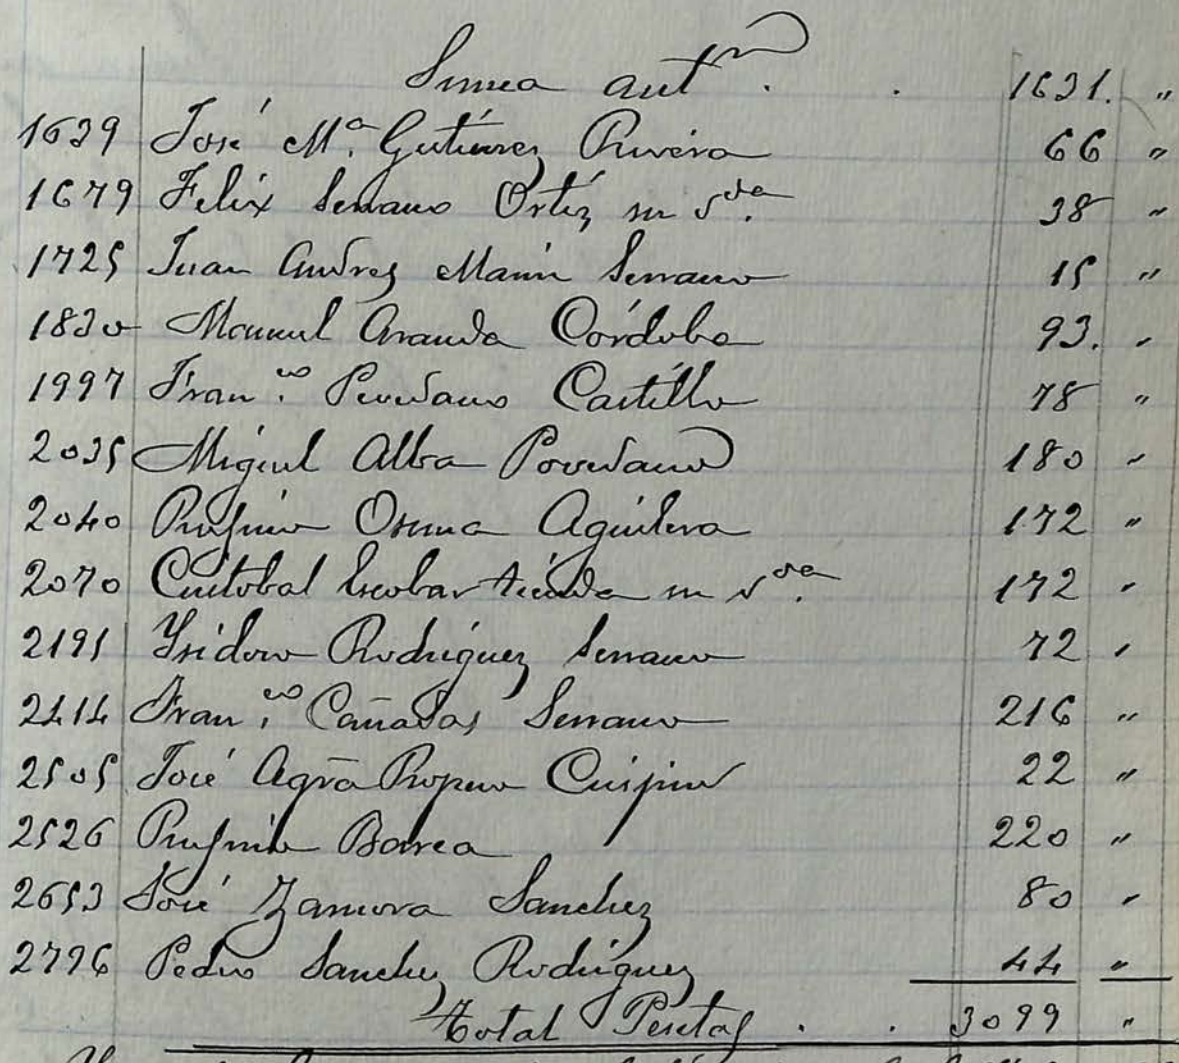 Suma antr . . 1631. "
1639 José Mª. Gutierrez Rivera 66 "
1679 Felix Serrano Ortiz su vda. 38 "
1725 Juan Andres Marin Serrano 15 "
1830 Manuel Aranda Córdoba 93. "
1997 Franco. Povedano Castillo 78 "
2035 Miguel Alba Povedano 180 "
2040 Rufino Osuna Aguilera 172 "
2070 Cristobal Escobar su vda. 172 "
2191 Ysidoro Rodriguez Serrano 72 "
2414 Franco. Cañadas Serrano 216 "
2505 José Agra Ropero Crispin 22 "
2526 Rufino Barea 220 "
2653 José Zamora Sanchez 80 "
2796 Pedro Sanchez Rodriguez 44 "
Total Pesetas . . 3099 "